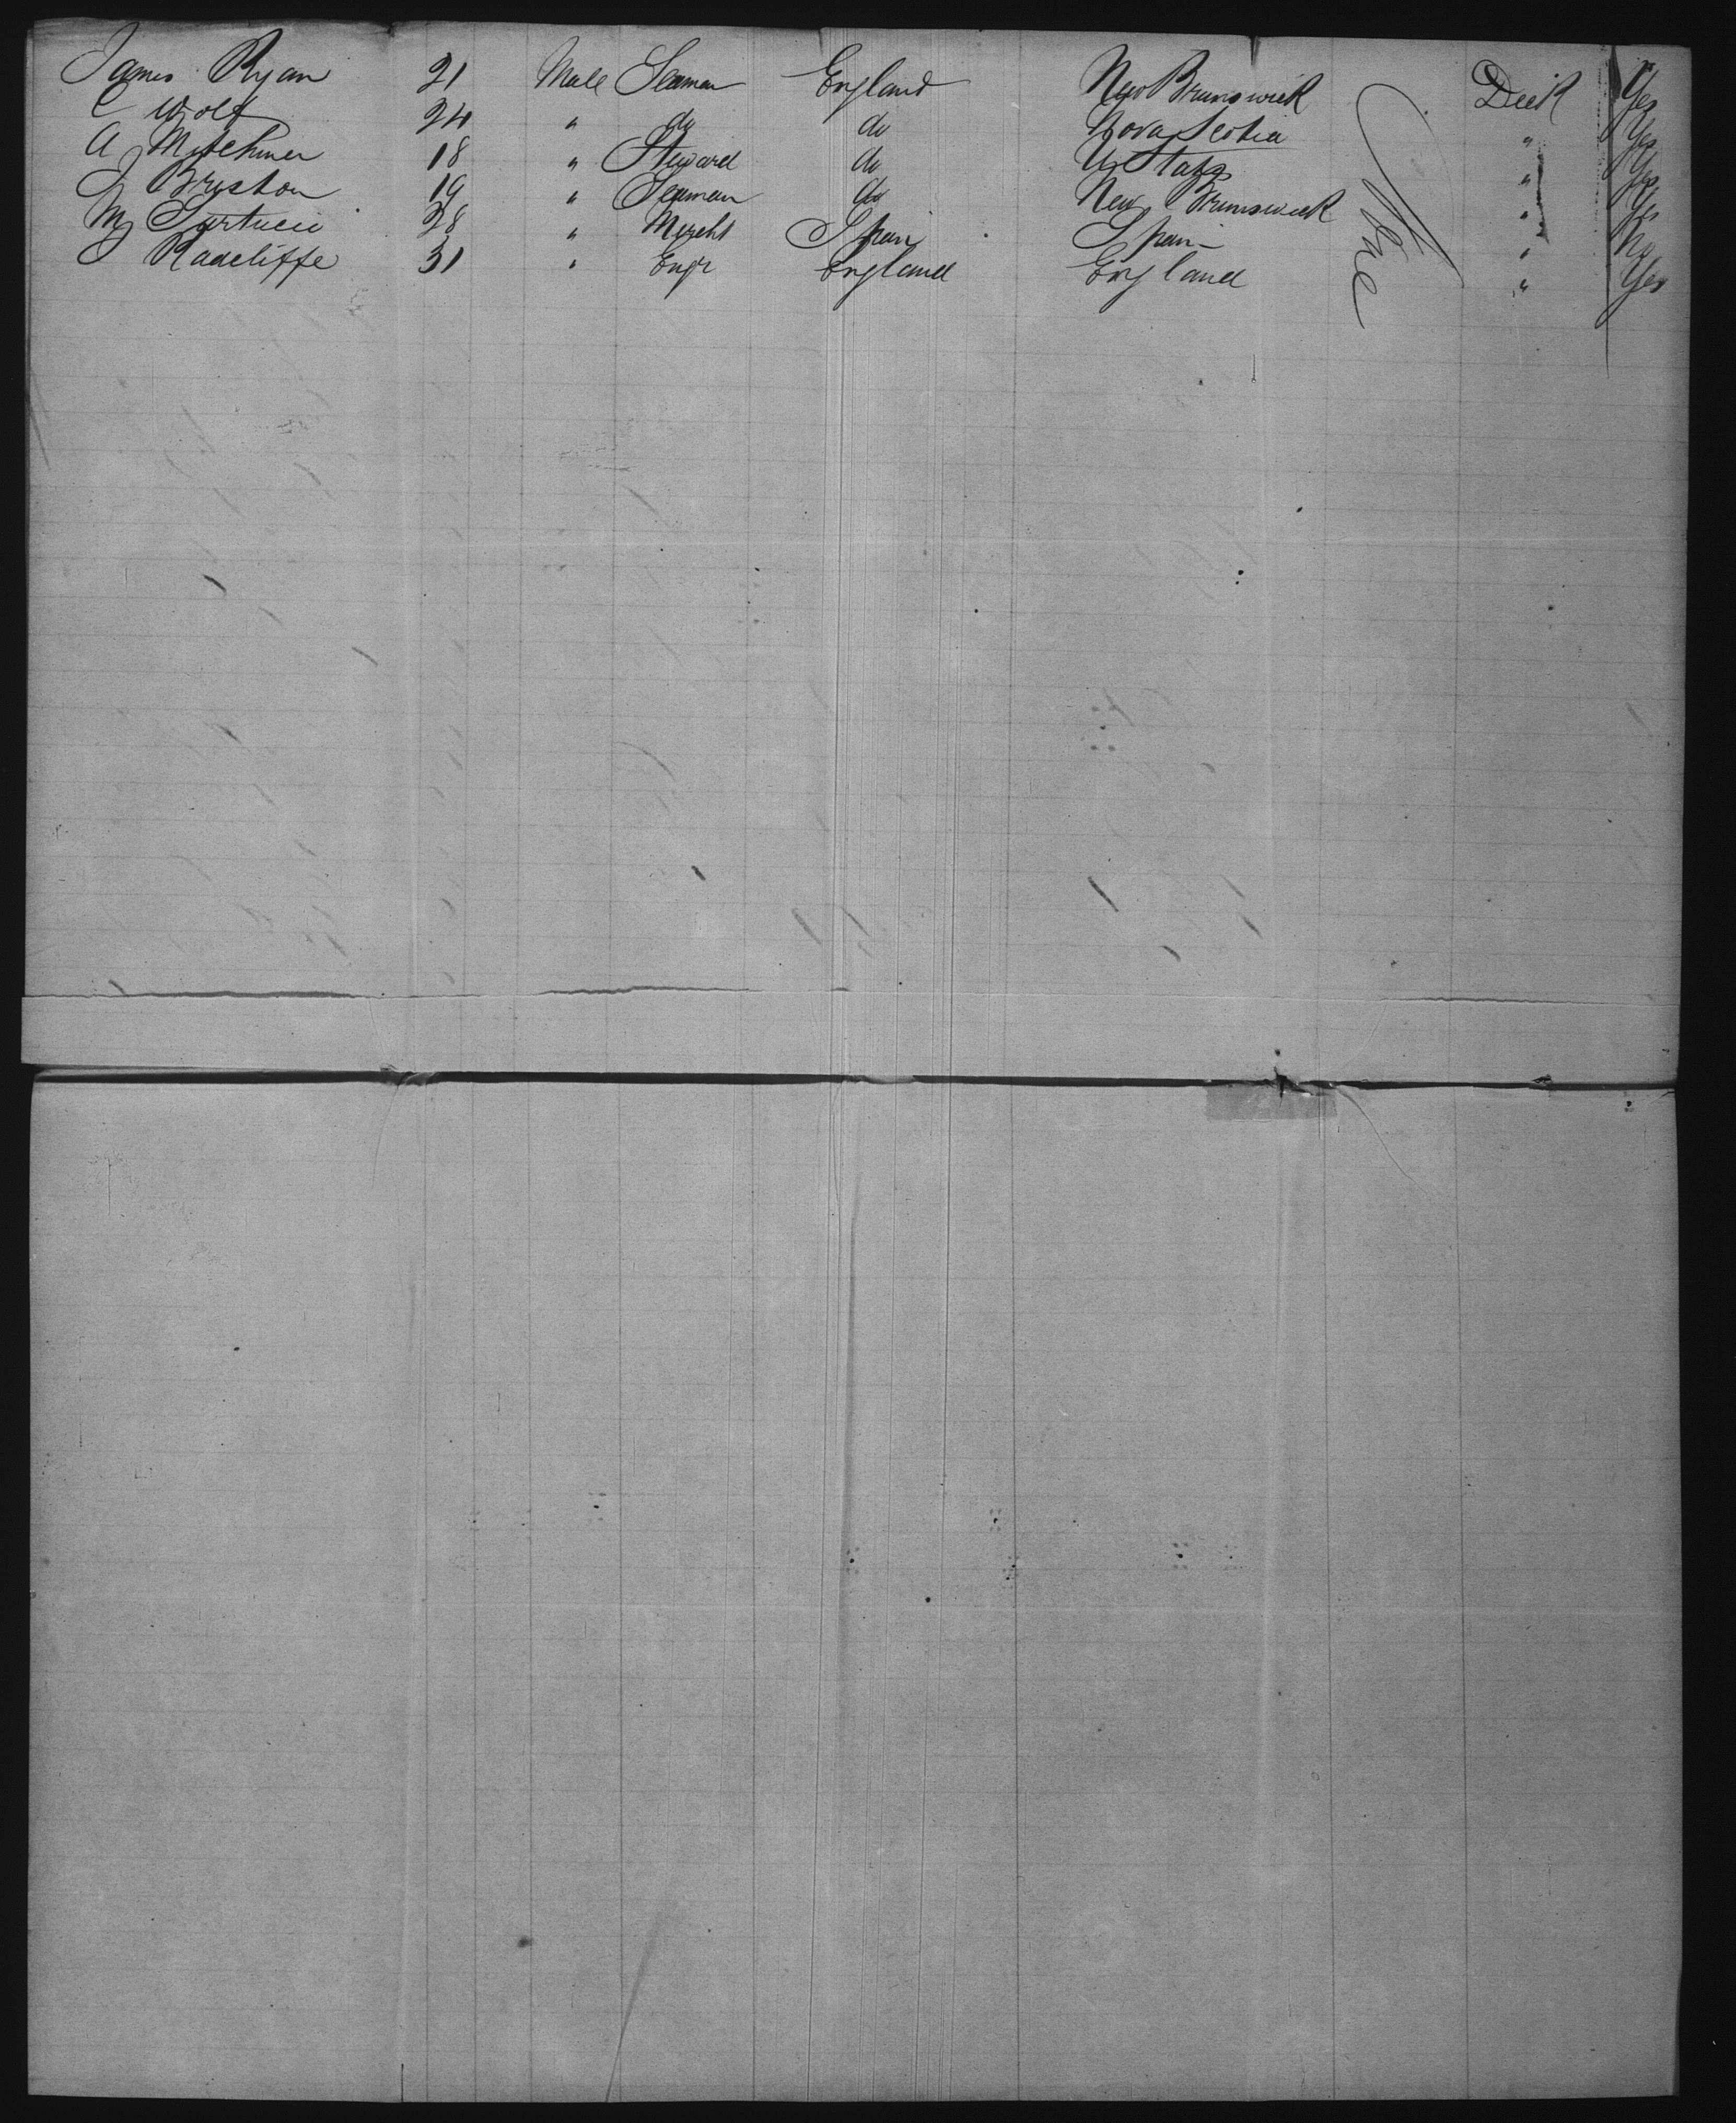 James Ryan 21 Male Seaman England New Brunswick Deck Yes
C Wolf 24 " do do Nova Scotia " Yes
A Mitchiner 18 " Steward do U States " Yes
J Briston 19 " Seaman do New Brunswick " Yes
M 28 " Mercht Spain Spain " No
J Radcliffe 31 " Engr England England " Yes
None